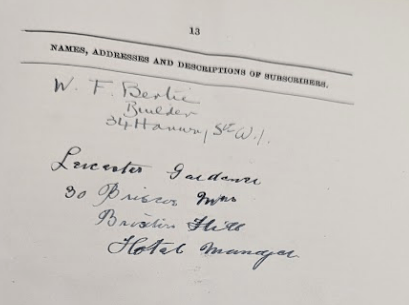 13
NAMES, ADDRESSES AND DESCRIPTIONS OF SUBSCRIBERS.
W. F. Bertie
Builder
34 St W.1.
Leicester Gardner
30
Brixton Hill
Hotel Manager